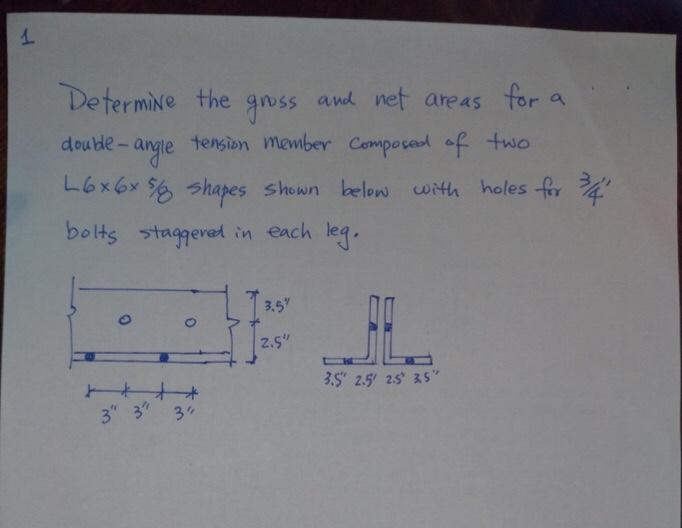 1
Determine the gross and net areas for a
double-angle tension member composed of two
L6x6x 5/8 shapes shown below with holes for 3/4"
bolts staggered in each leg.
3.5"
2.5"
3.5" 2.5' 2.5' 3.5"
3" 3" 3"